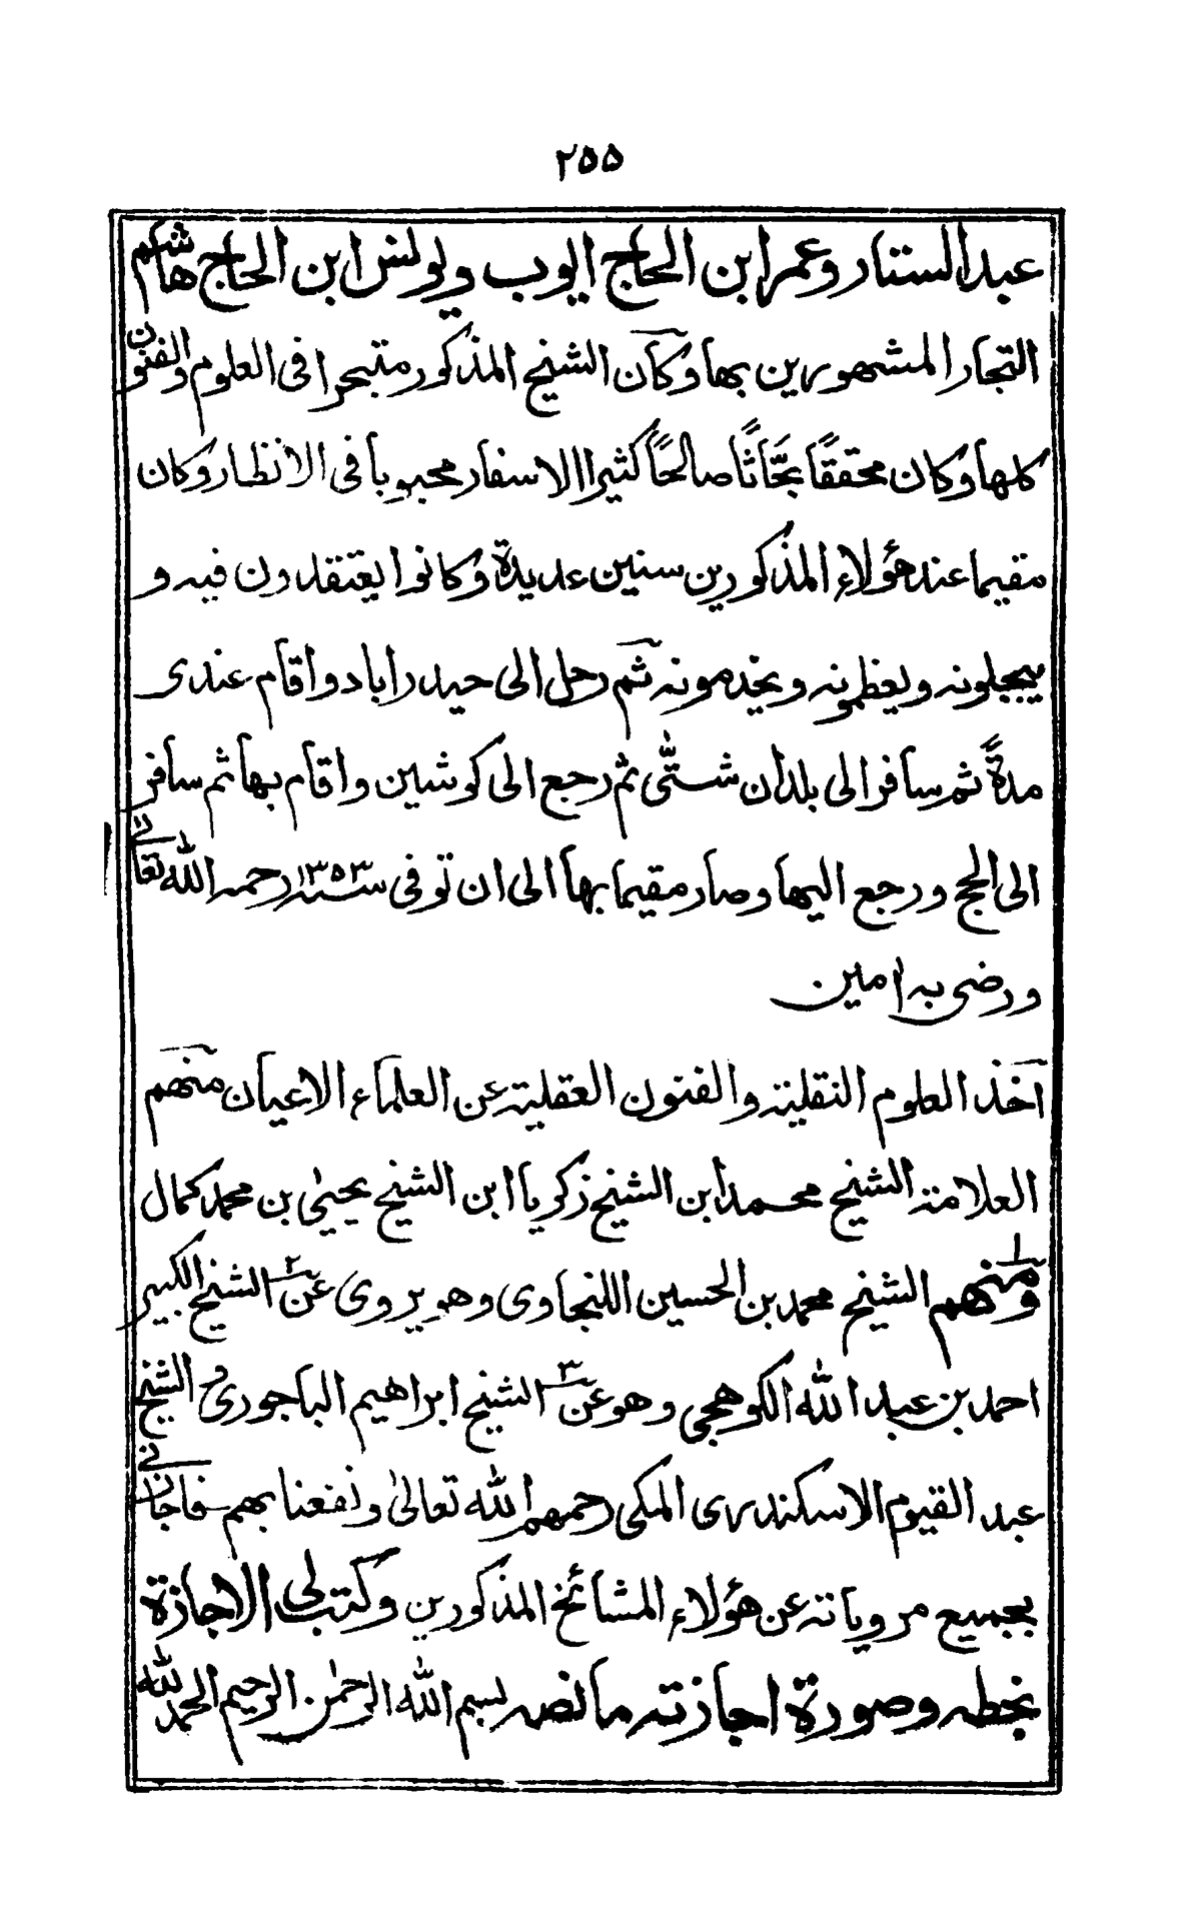 ٢٥٥
عبد الستار وعمر ابن الحاج ايوب ويونس ابن الحاج هاشم
التجار المشهورين بها وكان الشيخ المذكور متبحرا فى العلوم والفنون
كلها وكان محققًا بحّاثًا صالحًا كثير الاسفار محبوبا فى الانظار وكان
مقيما عند هؤلاء المذكورين سنين عديدة وكانوا يعتقدون فيه و
يبجلونه ويعظمونه ويخدمونه ثم رحل الى حيدراباد واقام عندى
مدةً ثم سافر الى بلدان شتّى ثم رجع الى كوشين واقام بها ثم سافر
الى الحج ورجع اليها وصار مقيما بها الى ان توفى سنة ١٣٥٣ رحمه الله تعالى
ورضى به امين
اخذ العلوم النقلية والفنون العقلية عن العلماء الاعيان منهم
العلامة الشيخ محمد ابن الشيخ زكريا ابن الشيخ يحيىٰ بن محمد كمال
ومنهم١ الشيخ محمد بن الحسين اللنجاوى وهو يروى عن٢ الشيخ الكبير
احمد بن عبد الله الكوهجى وهو عن٣ الشيخ ابراهيم الباجورى و الشيخ
عبد القيوم الاسكندرى المكى رحمهم الله تعالىٰ ونفعنا بهم فاجازنى
بجميع مروياته عن هؤلاء المشائخ المذكورين وكتب لى الاجازة
بخطه وصورة اجازته ما نصه بسم الله الرحمٰن الرحيم الحمد لله